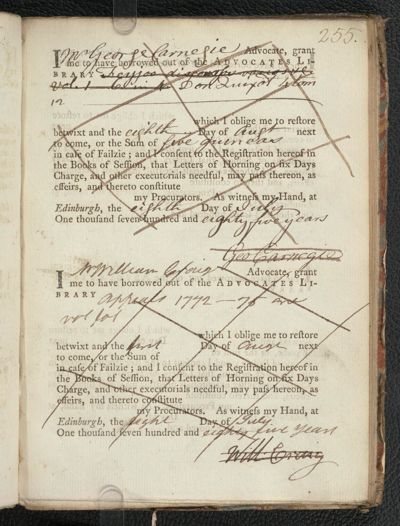 255.
I Mr George Carnegie Advocate, grant
me to have borrowed out of the ADVOCATES LI-
BRARY
Vol. 1 Don Quixot
12
which I oblige me to restore
betwixt and the eighth Day of Augt next
to come, or the Sum of five guineas
in caſe of Failzie; and I conſent to the Regiſtration hereof in
the Books of Seſſion, that Letters of Horning on ſix Days
Charge, and other executorials needful, may paſs thereon, as
effeirs, and thereto conſtitute
my Procurators. As witneſs my Hand, at
Edinburgh, the eighth Day of July
One thouſand ſeven hundred and eighty five years
Geo Carnegie
I Mr William Craig Advocate, grant
me to have borrowed out of the ADVOCATES LI-
BRARY appeals 1772 – 75 one
vol fol
which I oblige me to reſtore
betwixt and the first Day of Augt next
to come, or the Sum of
in caſe of Failzie; and I conſent to the Regiſtration hereof in
the Books of Seſſion, that Letters of Horning on ſix Days
Charge, and other executorials needful, may paſs hereon, as
effeirs, and thereto conſtitute
my Procurators. As witneſs my Hand, at
Edinburgh, the eight Day of July
One thouſand ſeven hundred and eighty five years
Will Craig